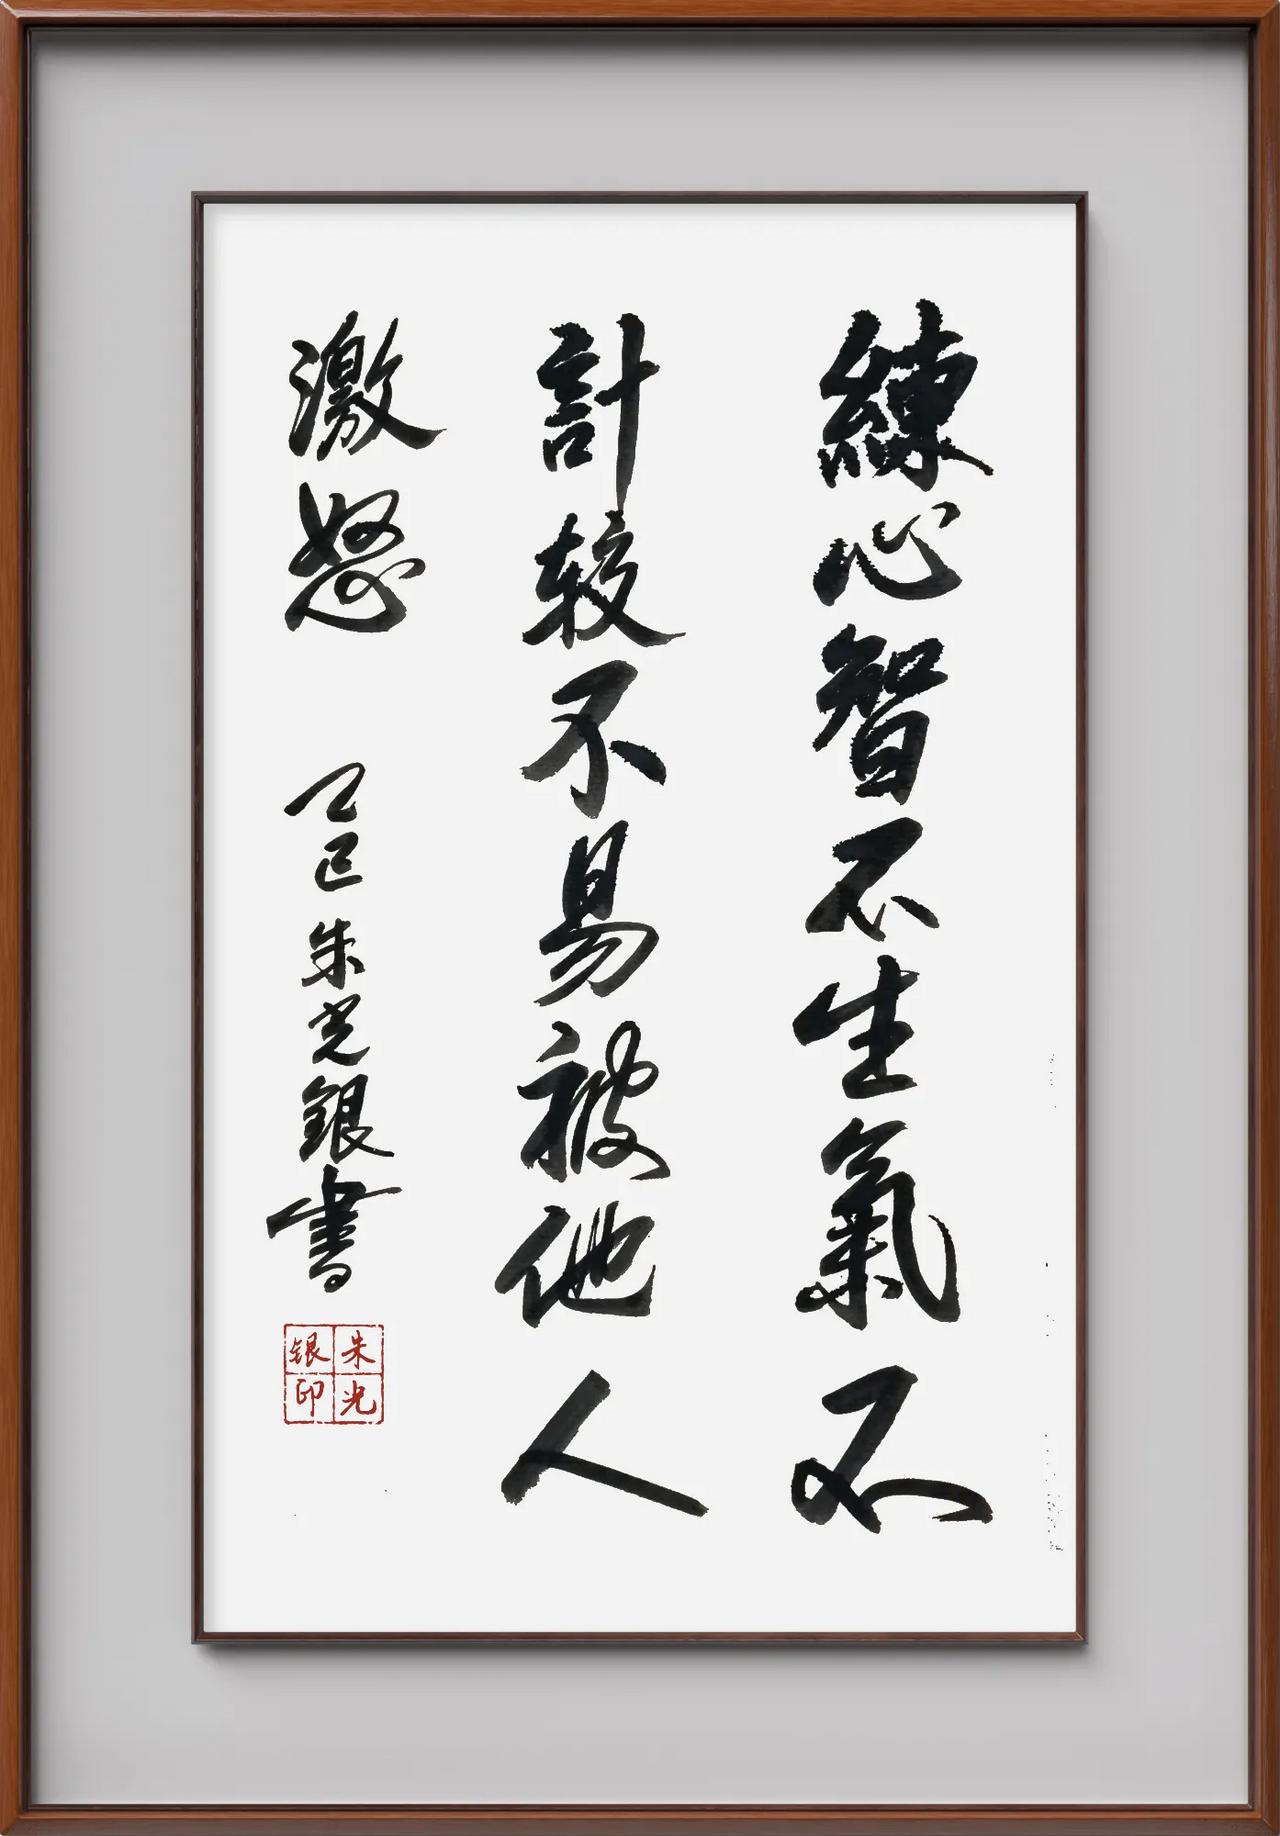 練心智不生氣不
計较不易被他人
激怒
乙巳朱光銀書
朱光
银印